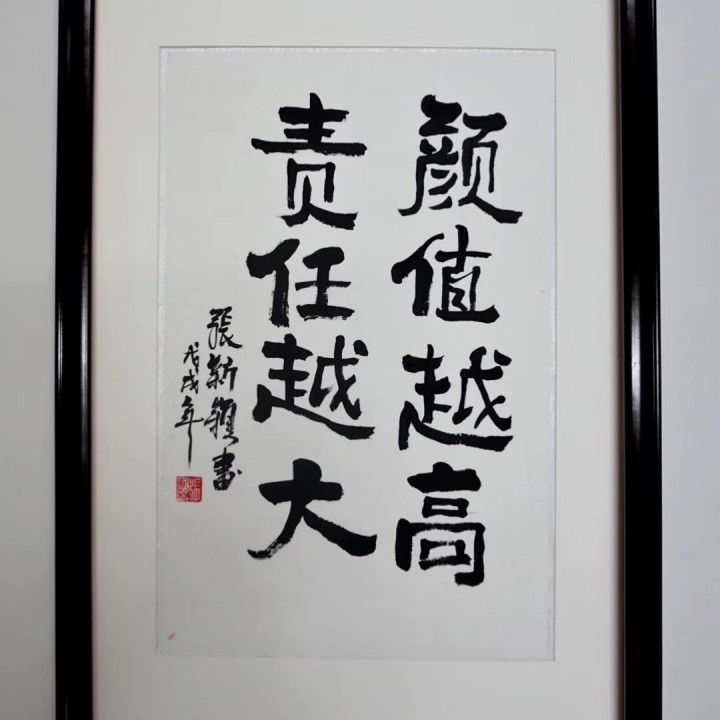 颜值越高
责任越大
張新颖書
戊戌年